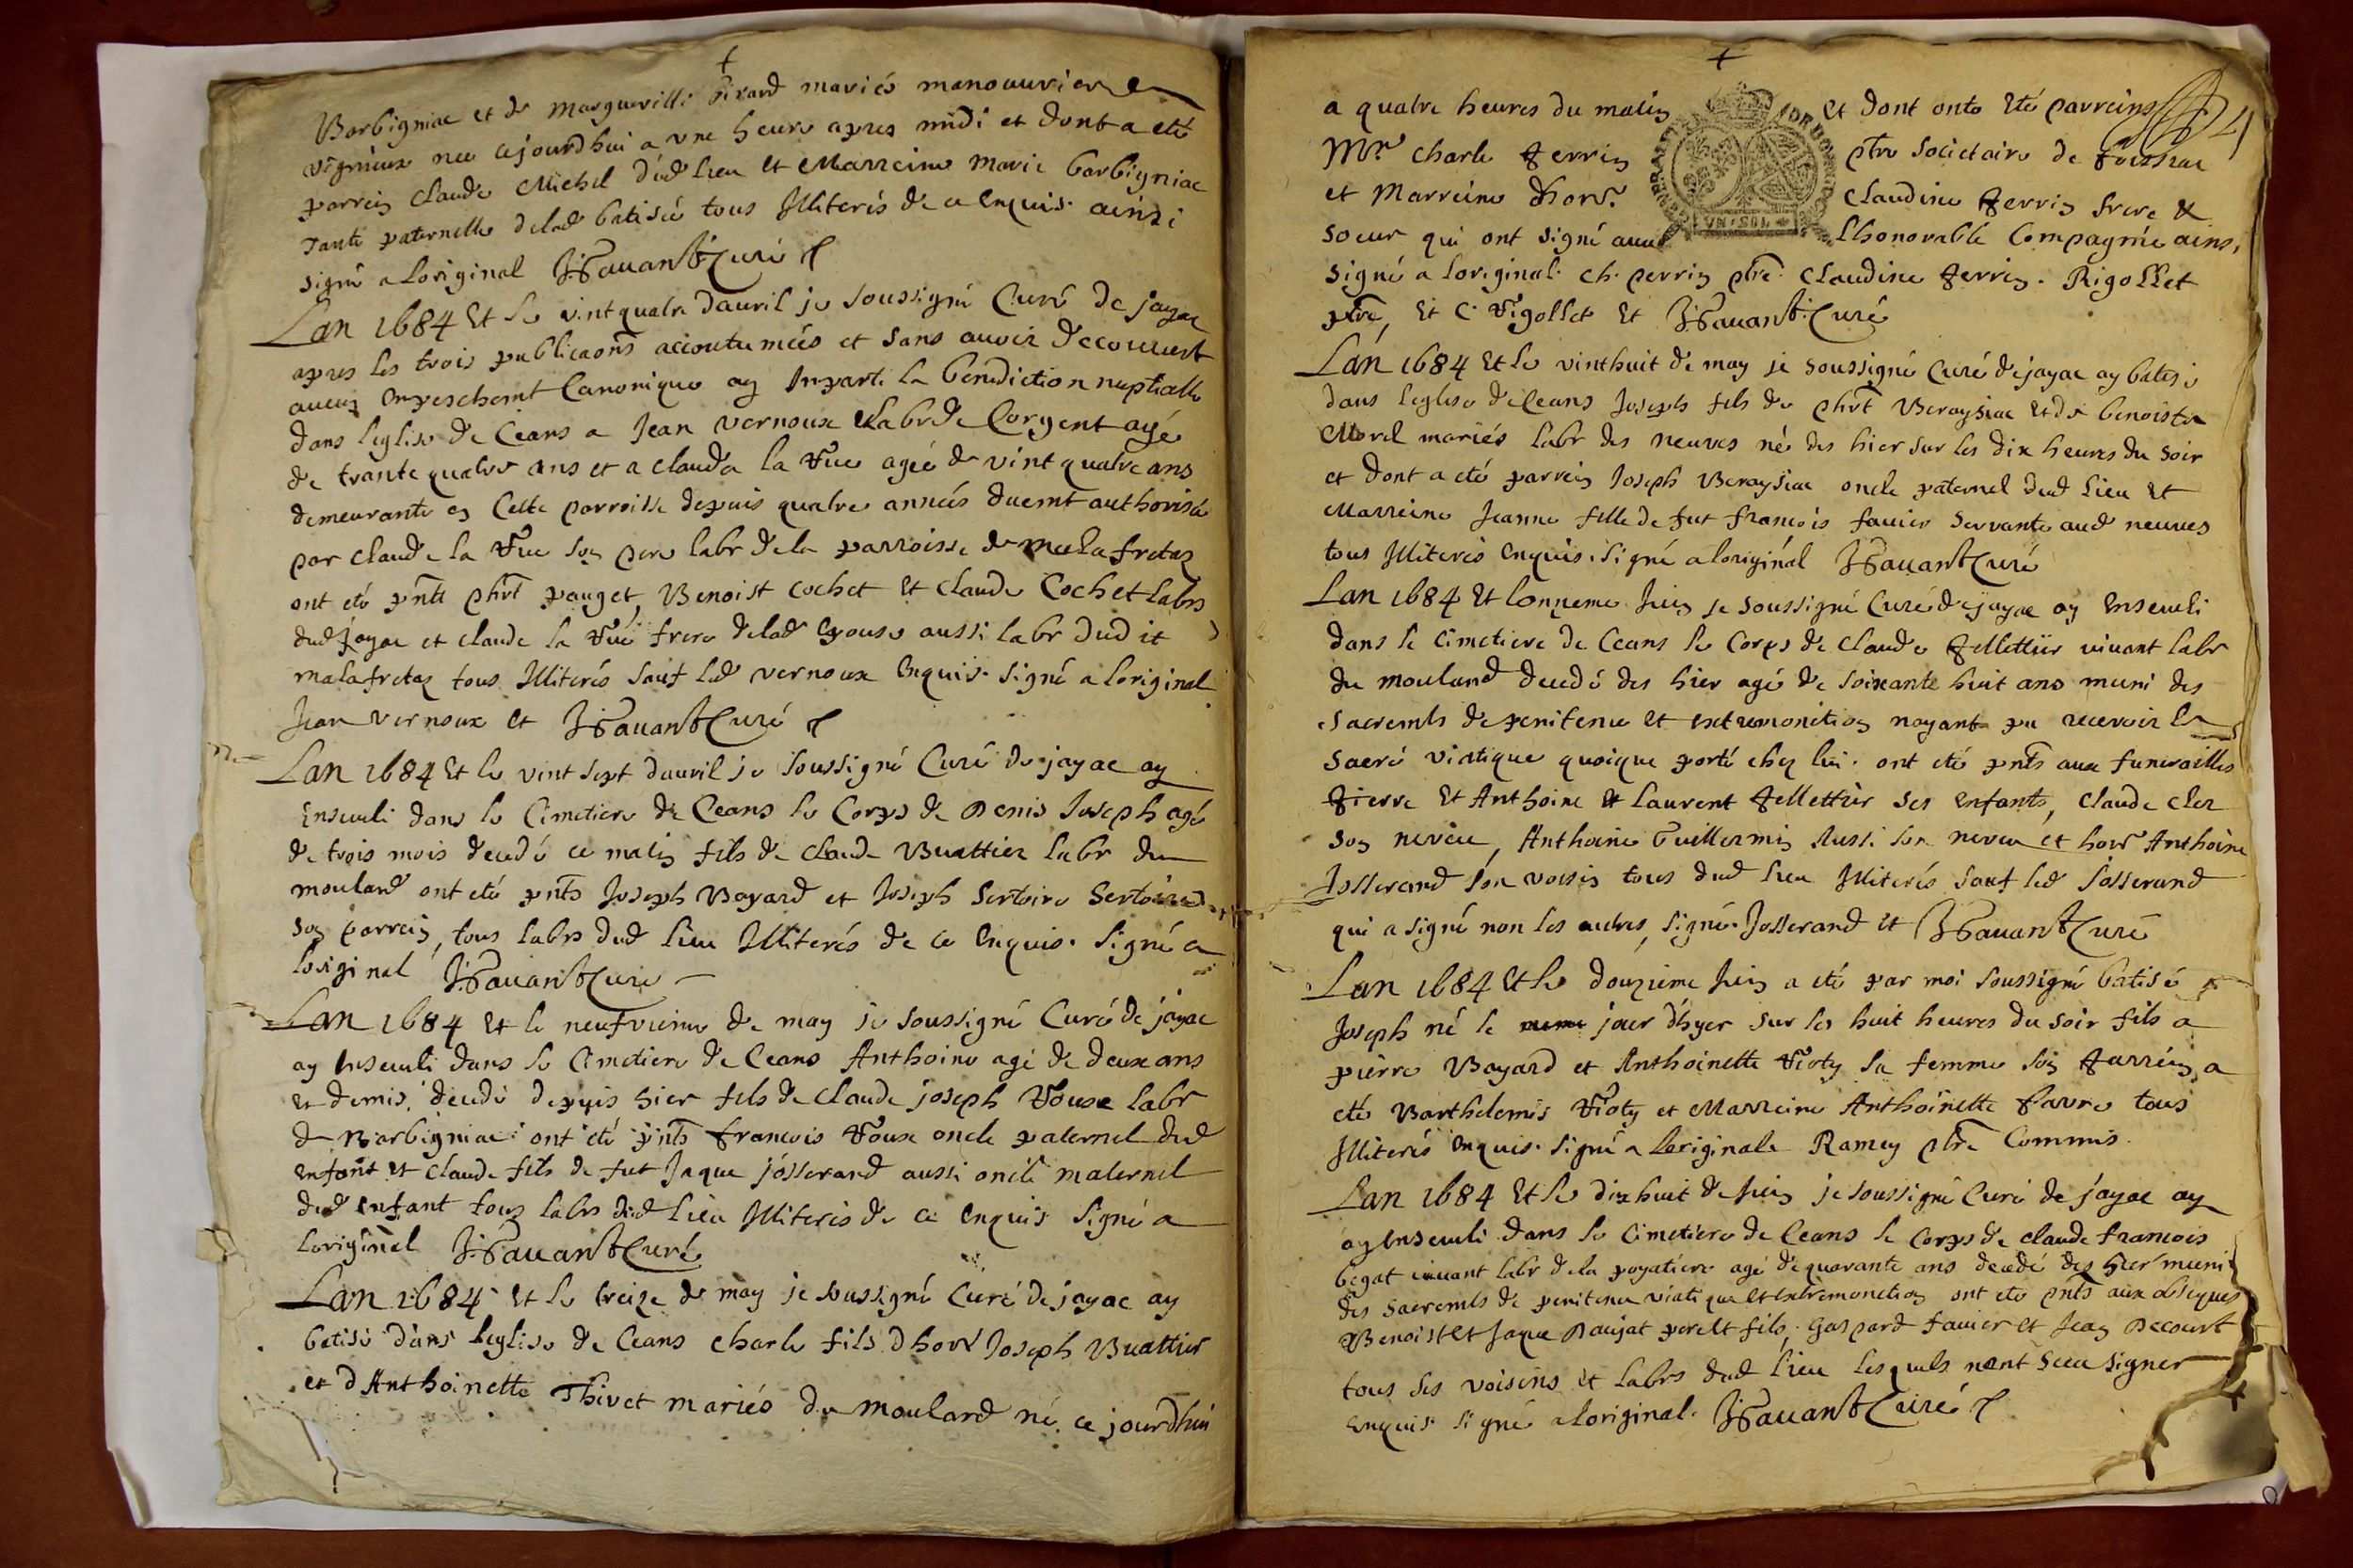 +
Barbigniac et de Margueritte Pirard mariés manouvrier en
vigneux nee cejourdhui a une heure apres midi et dont a eté
parrein Claude Michel dud lieu et Marreine Marie barbigniac
Tante paternelle delad batisée tous Illiterés de ce enquis. ainsi
signé a loriginal Havant Curé
Lan 1684 Et le vint quatre dauril je soussigné Curé de jayac
apres les trois publicaons accoutumées et sans auoir decouuert
aucun Empeschemt Canonique ay Imparti la benediction nuptialle
dans leglise de Ceans a Jean vernoux Labr de Corgent agé
de trante quatre ans et a Clauda la Vue agée de vint quatre ans
demeurante en Cette parroisse depuis quatre années duemt authorisée
par Claude la Vue son pere labr dela parroisse de malafretaz
ont eté pnts phrt pauget, Benoist Cochet Et Claude Cochet labrs
dud Jayac et Claude la Vue frere delad Epouse aussi labr dudit
malafretaz tous Illiterés sauf led vernoux Enquis. signé a loriginal
Jean vernoux Et Havant Curé
Lan 1684 Et le vint sept dauril je soussigné Curé de jayac ay
Enseueli dans le Cimetiere de Ceans le Corps de Denis Joseph agé
de trois mois decedé ce matin fils de Claude Buattier labr du
moulard ont eté pnts Joseph Boyard et Joseph Sertoire
son parrein, tous labrs dud lieu Illiterés de ce Enquis. signé a
loriginal Havant Curé
Lan 1684 Et le neufvieme de may je soussigné Curé de jayac
ay Enseueli dans le Cimetiere de Ceans Anthoine agé de deux ans
et demis, decedé depuis hier fils de Claude joseph Voux labr
de Barbigniac ont eté pnts francois Voux oncle paternel dud
enfant Et Claude fils de fut Jaque josserand aussi oncle maternel
dud enfant tous labrs dud lieu Illiterés de ce Enquis signé a
loriginal Havant Curé
Lan 1684 Et le treize de may je soussigné Curé de jayac ay
batisé dans leglise de Ceans Charle fils dhonr Joseph Buattier
et dAnthoinette Thivet mariés du moulard né ce jourdhui
+
4
a quatre heures du matin Et dont onts Eté parreins
Mr Charle Perrin ptre societaire de
et Marreine honr. Claudine Perrin frere &
soeur qui ont signé auec lhonorable Compagnie ainsi
signé a loriginal. Ch. perrin ptre. Claudine Perrin. Rigollet
ptre, Et C. Rigollet Et Havant Curé
Lan 1684 Et le vinthuit de may je soussigné Curé de jayac ay batisé
dans leglise de Ceans Joseph fils de phrt Beraysiac Et de benoiste
Morel mariés labr des neuves né des hier sur les dix heures du soir
et dont a eté parrein Joseph Beraysiac oncle paternel dud lieu Et
Marreine Jeanne fille de fut francois fauier servante aud neuves
tous Illiterés Enquis. signé a loriginal Havant Curé
Lan 1684 Et lonzieme Juin je soussigné Curé de jayac ay Enseueli
dans le Cimetiere de Ceans le Corps de Claude Pellettier viuant labr
du moulard decedé des hier agé de soixante huit ans muni des
Sacremts de penitence Et extremonction nayant pu recevoir le
sacré viatique quoique porté chez lui. ont eté pnts aux funerailles
Pierre Et Anthoine Et Laurent Pellettier ses enfants, Claude Clez
son neveu, Anthoine Guillermin Aussi son neveu et honr Anthoine
Josserand son voisin tous dud lieu Illiterés sauf led Josserand
qui a signé non les autres, signé. Josserand et Havant Curé
Lan 1684 Et le douzieme Juin a eté par moi soussigné batisé
Joseph né le jour dhyer sur les huit heures du soir fils a
pierre Bayard et Anthoinette Vioty sa femme son Parrein a
eté Barthelemis Vioty et Marreine Anthoinette favre tous
Illiterés Enquis. signé a Loriginale Ramey ptre Commis.
Lan 1684 Et le dixhuit de Juin je soussigné Curé de jayac ay
ay Enseueli dans le Cimetiere de Ceans le Corps de Claude francois
begat viuant labr dela poyatiere agé de quarante ans decedé des hier muni
des Sacremts de penitence viatique Et Extremonction ont eté pnts aux obseques
Benoist Et Jaque Daujat pere Et fils, Gaspard fauier et Jean Decourt
tous ses voisins et labrs dud lieu lesquels nont sceu signer
Enquis. signé a loriginal. Havant Curé